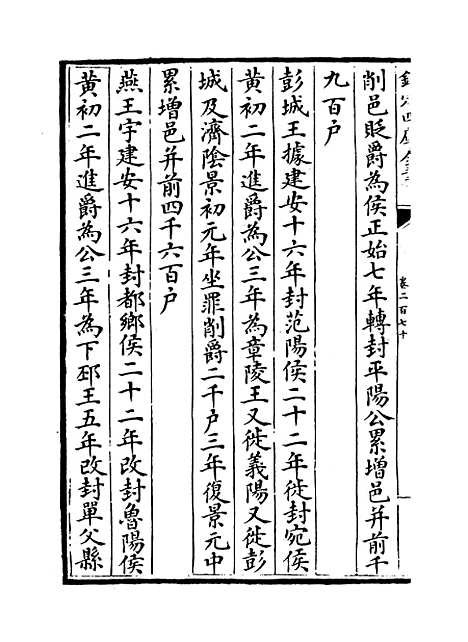 欽定四庫全書
卷二百七十
削邑貶爵為侯正始七年轉封平陽公累增邑并前千
九百户
彭城王據建安十六年封范陽侯二十二年徙封宛侯
黄初二年進爵為公三年為章陵王又徙義陽又徙彭
城及濟陰景初元年坐罪削爵二千户三年復景元中
累增邑并前四千六百户
燕王宇建安十六年封都鄉侯二十二年改封魯陽侯
黄初二年進爵為公三年為下邳王五年改封單父縣